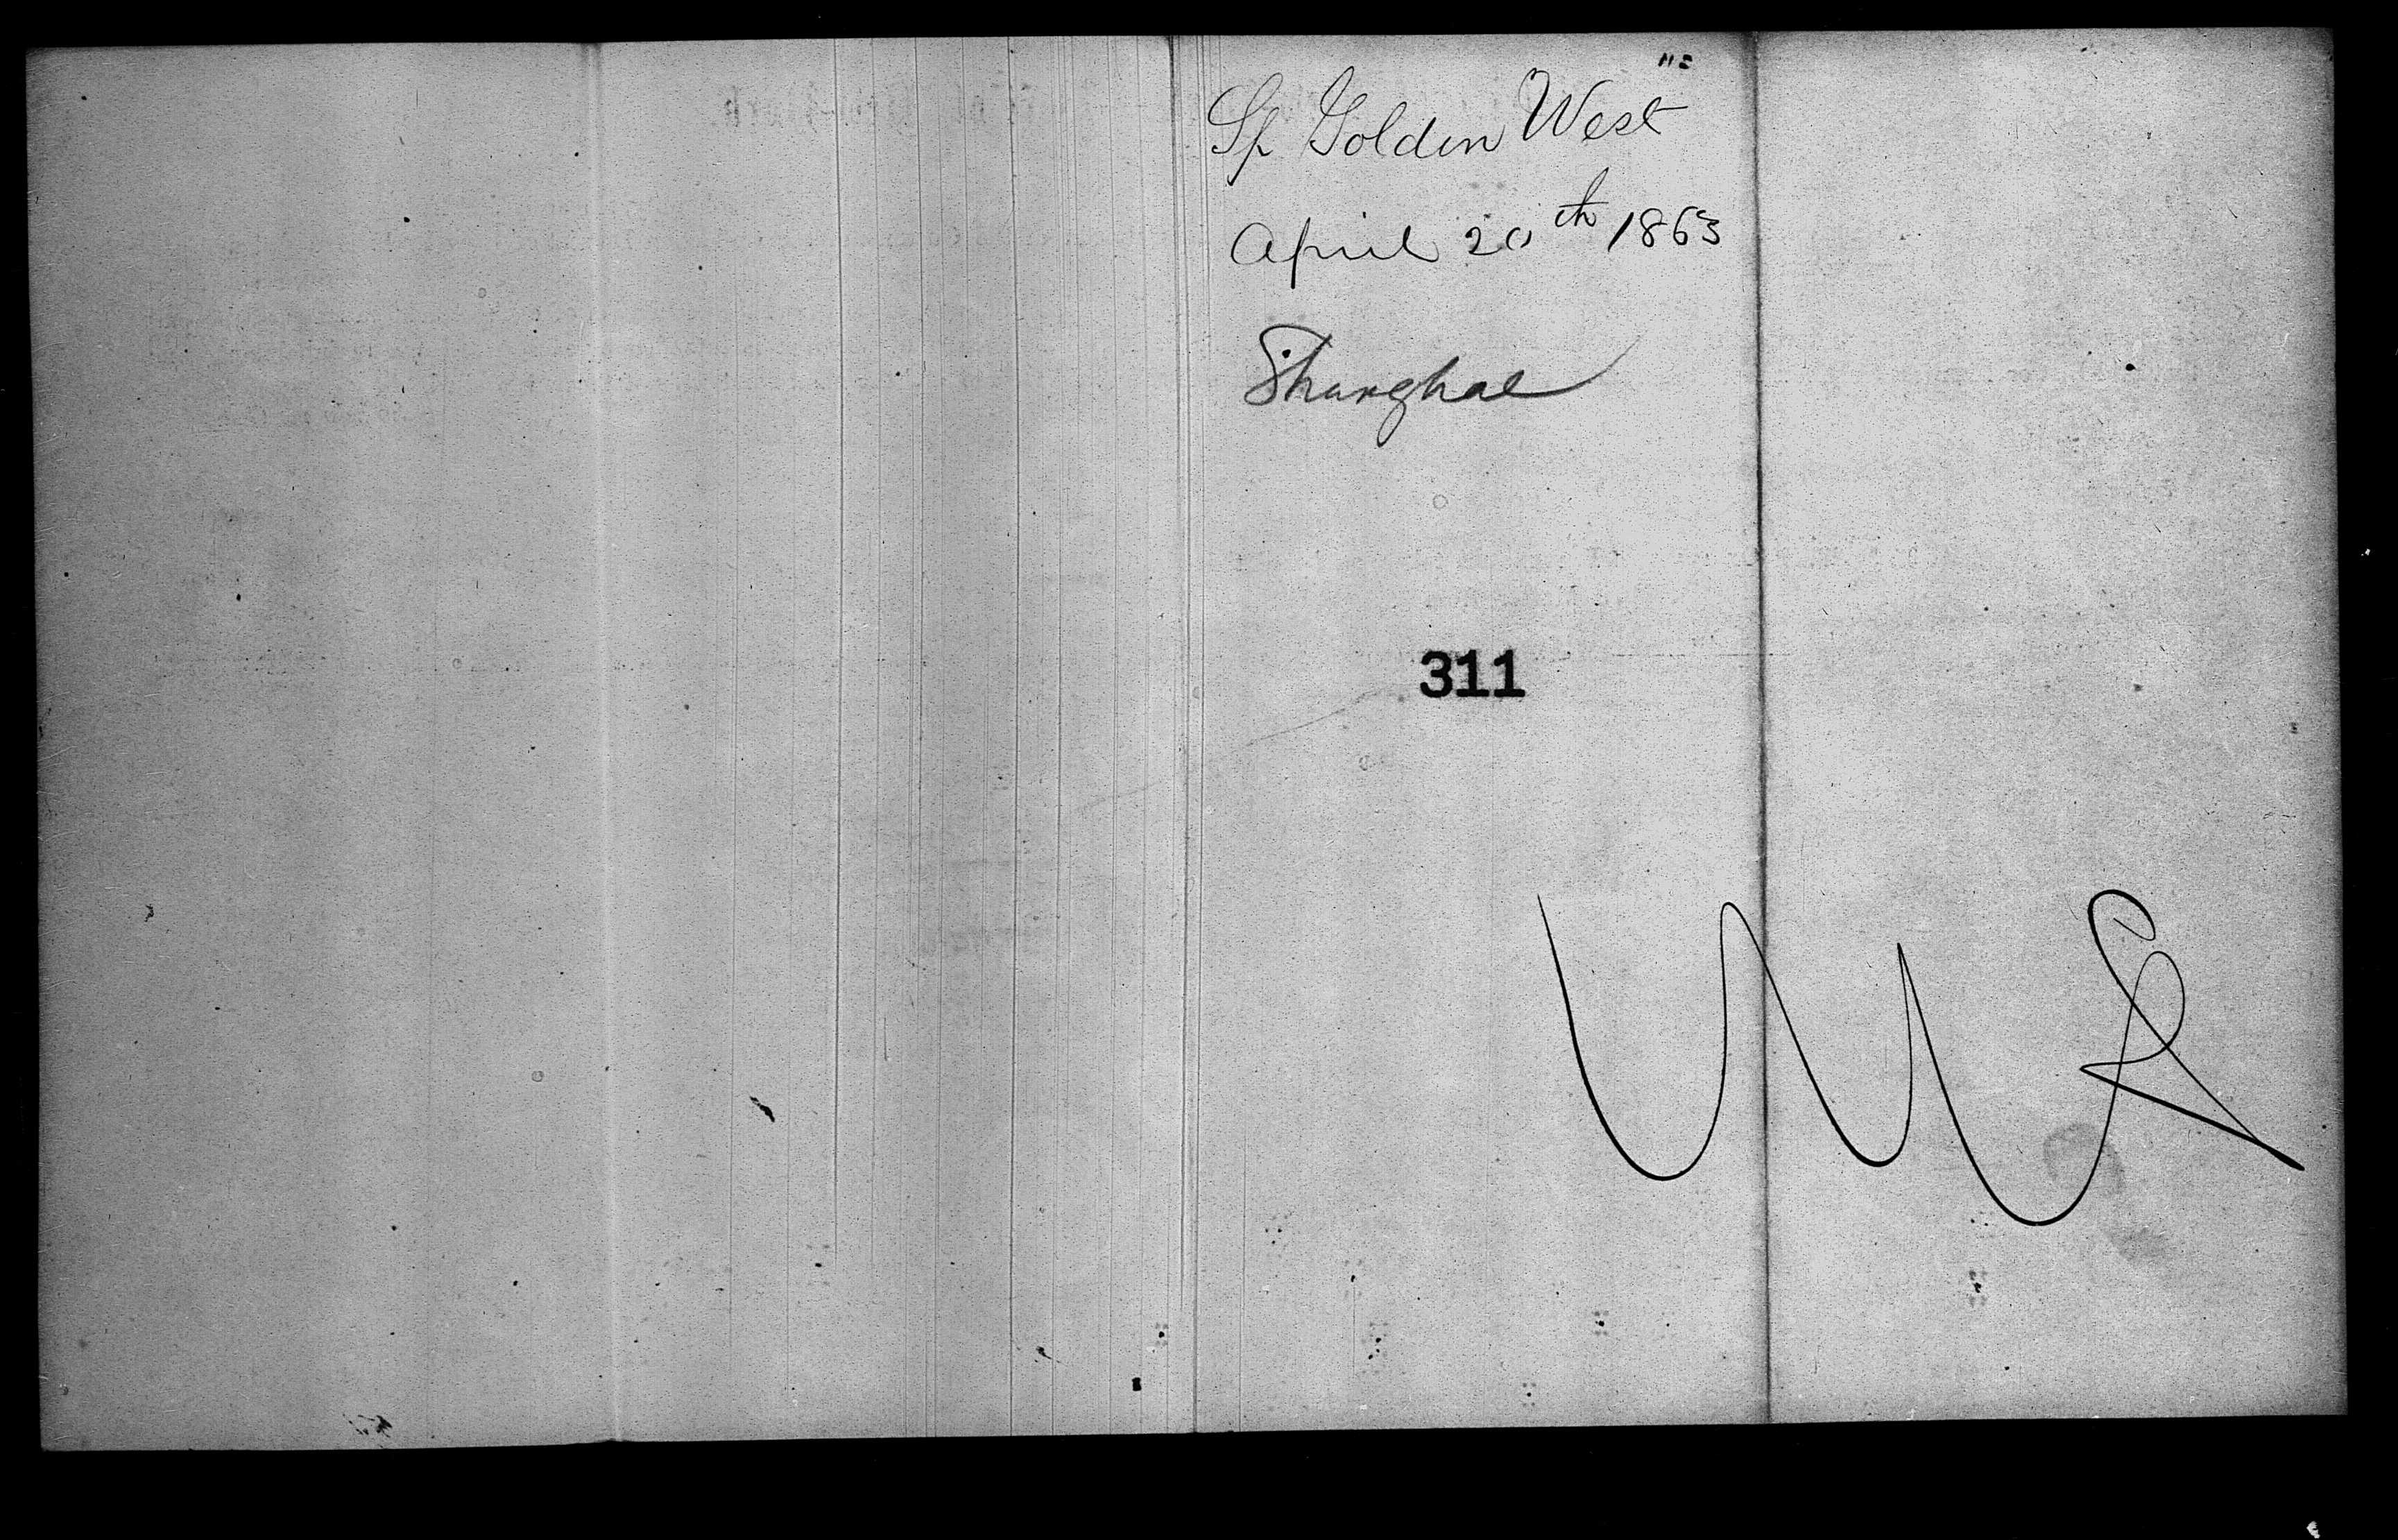 Sp Golden West
April 20th 1863
Shanghae
311